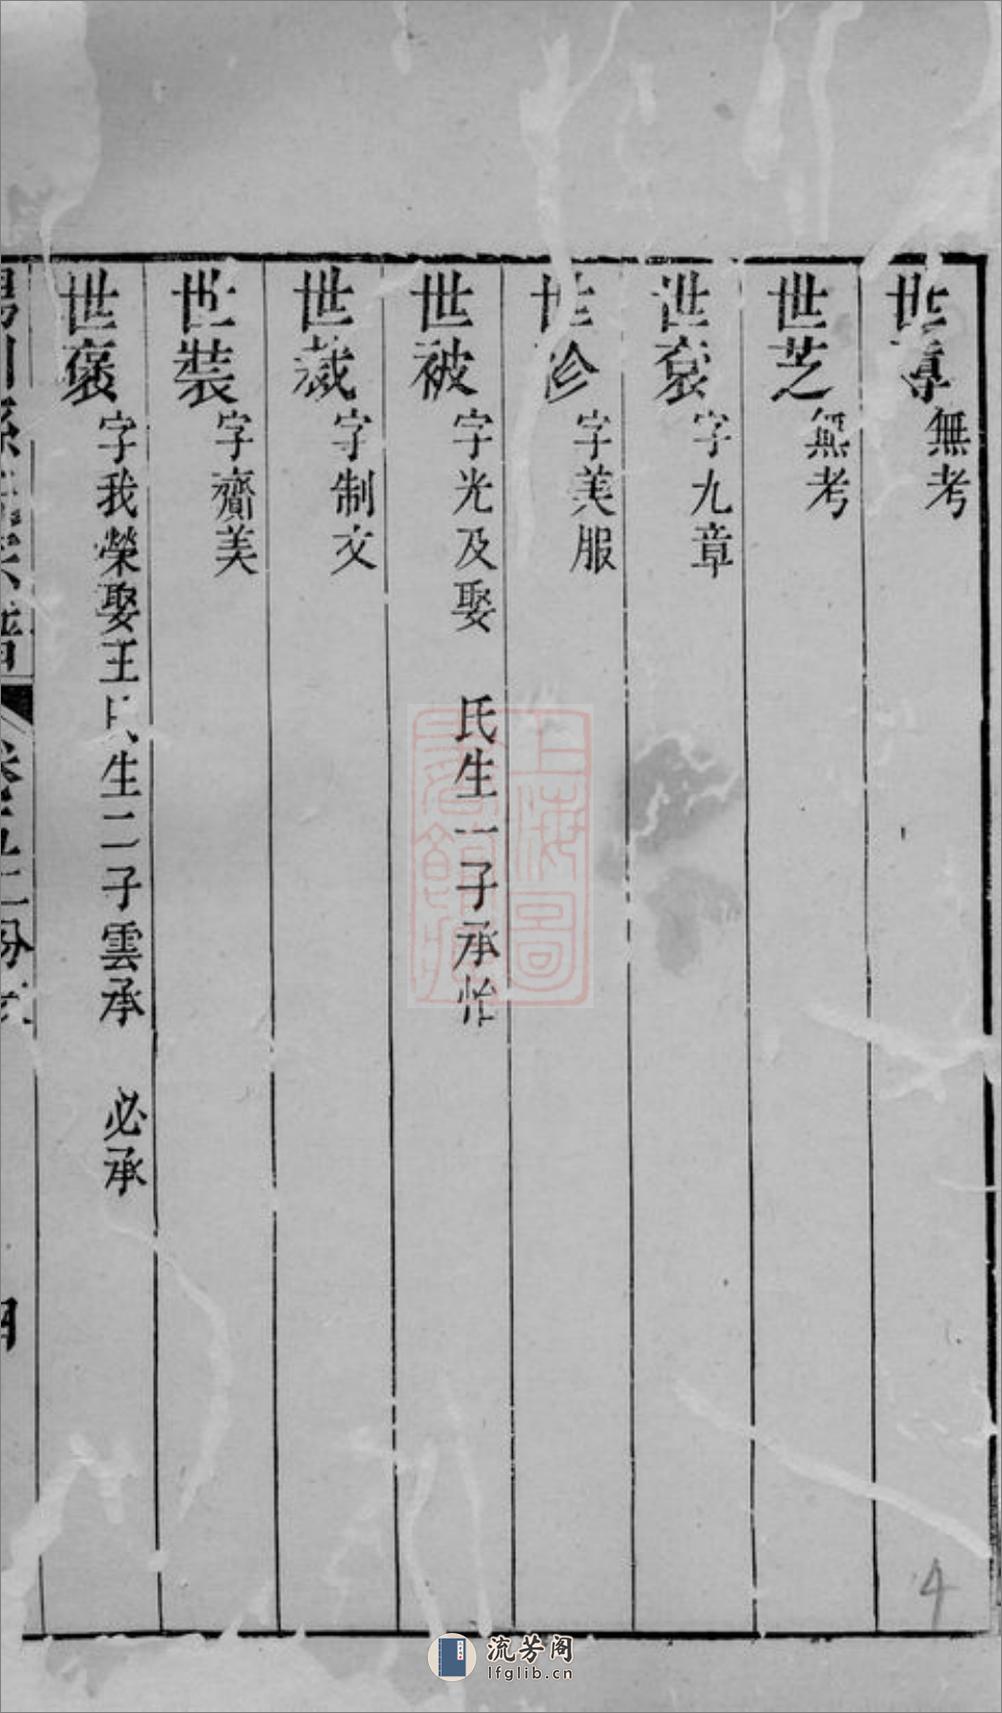 世 無考
世芝 無考
世袞 字九章
世袗 字美服
世被 字光及娶　氏生一子承怡
世裁 字制文
世裝 字齎美
世褒 字我榮娶王氏生二子雲承　必承
四
4
上海圖書館藏
流芳阁
lfglib.cn